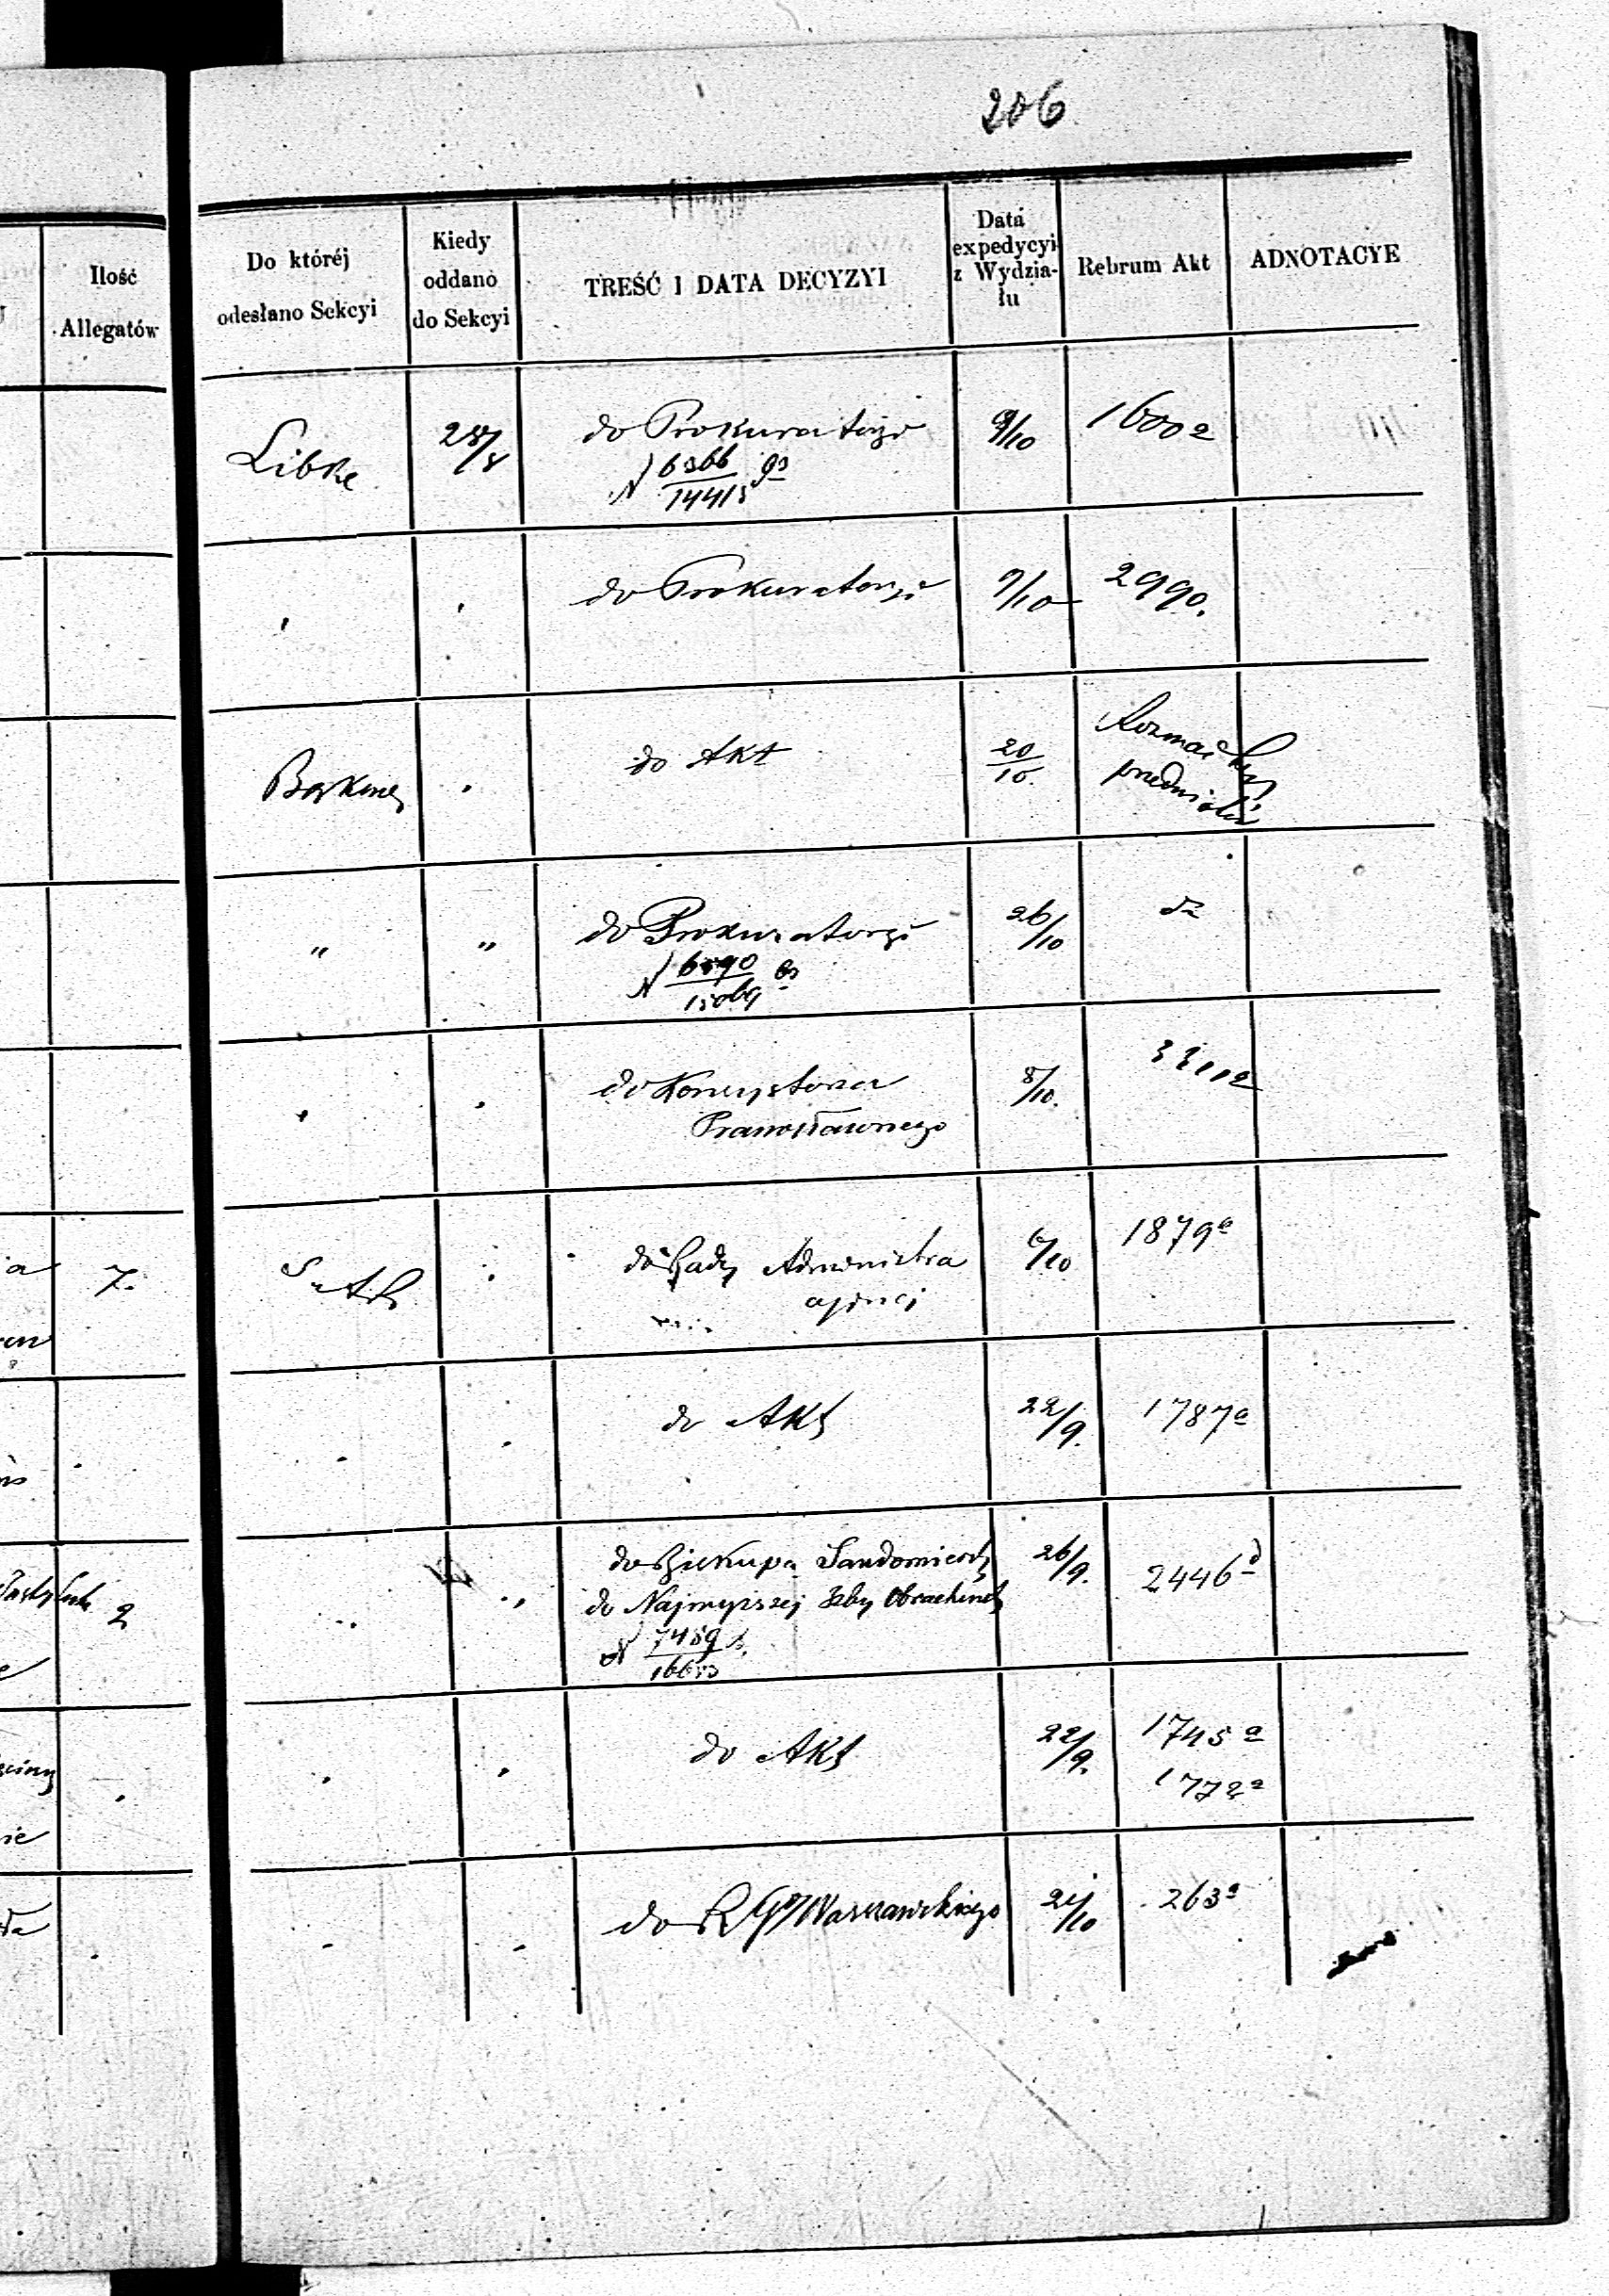 206
Ilość
Allegatów
Do któréj
odesłano Sekcyi
Kiedy
oddano
do Sekcyi
TREŚĆ I DATA DECYZYI
Data
expedycyi
z Wydzia-
łu
Rebrum Akt
ADNOTACYE
Libke
28/8
do Prokuratoryi
N 6366/14415
9/10
1600a
do Prokuratoryi
9/10
2990.
do Akt
20/10.
Rozmaitych
przedmiotów
"
"
do Prokuratoryi
N 6590/15069
26/10
do Konsystorza
Prawosławnego
8/10.
7.
do Rady Administra
cyjnej
6/10
1879a
do Akt
22/9.
1787a
2
do Biskupa Sandomiersk
do Najwyższej Izby Obrachunk
N 7489
26/9.
2446d
do Akt
22/9.
1745a
1772a
do R G Warszawskiego
263a